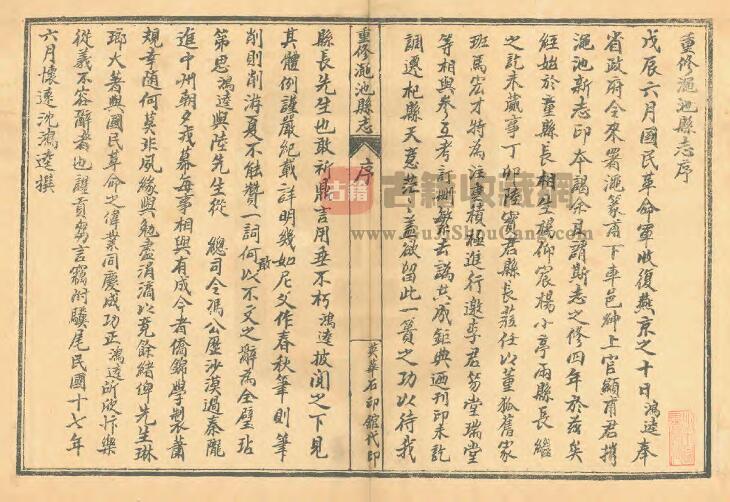 重修澠池縣志序
戊辰六月國民革命軍收復燕京之十日鴻逵奉
省政府令來署澠篆甫下車邑紳上官顯甫君攜
澠池新志印本謁余且謂斯志之修四年於茲矣
經始於童縣長相生楊仰宸楊小亭兩縣長繼
之訖未蕆事丁卯陸賓君縣長蒞任以董狐舊家
班馬宏才特為注意積極進行邀李君芴堂瑞堂
等相與參互考訂刪繁去譌共成鉅典迺刊印未訖
調遷杞縣天意茫茫蓋欲留此一簣之功以待我
重修澠池縣志
序
英華石印館代印
縣長先生也敢祈鼎言用垂不朽鴻逵披閱之下見
其體例謹嚴紀載詳明幾如尼父作春秋筆則筆
削則削游夏不能贊一詞何敢以不文之辭為全璧玷
第思鴻逵與陸先生從 總司令馮公歷沙漠過秦隴
進中州朝夕戎幕每事相與有成今者僑錦學製蕭
規幸隨何莫非夙緣與勉盡涓滴以竟餘緒俾先生琳
瑯大著與國民革命之偉業同慶成功正鴻逵所汲汴樂
從義不容辭者也謹貢芻言竊附驥尾民國十七年
六月懷遠沈鴻逵撰
古籍
古籍收藏网
www.GuJiShouCang.com